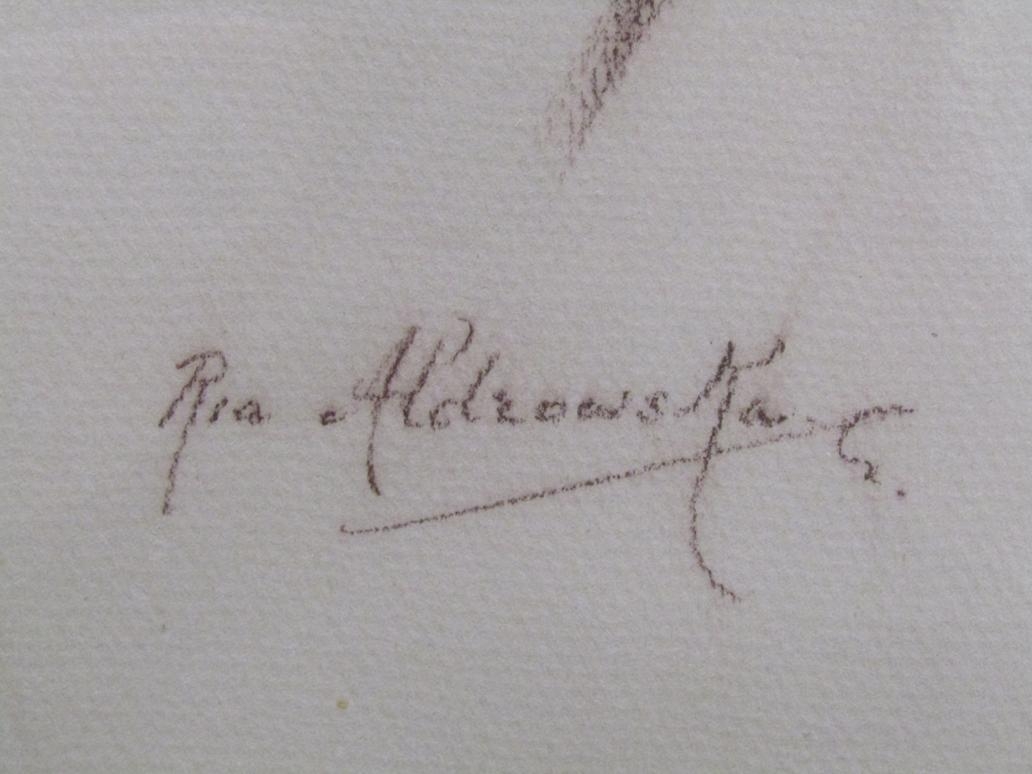 Ria Aldrowska